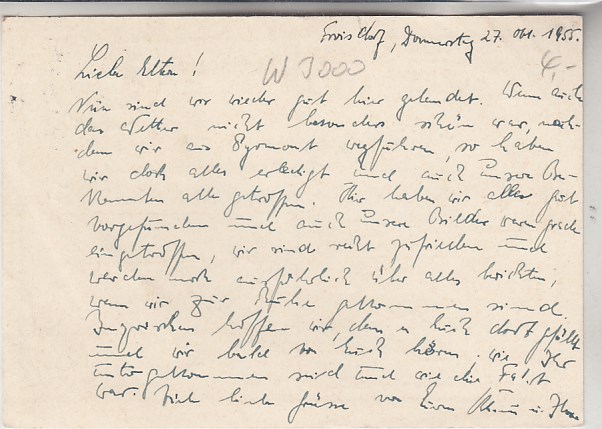 Troisdorf, Donnerstag 27. Okt. 1955.
Liebe Eltern!
W 3000
4,-
Nun sind wir wieder gut hier gelandet. Wenn auch
das Wetter nicht besonders schön war, nach-
dem wir aus Pyrmont wegfuhren, so haben
wir doch alles erledigt und auch unsere Be-
kannten alle getroffen. Hier haben wir alles gut
vorgefunden und auch unsere Bilder waren grade
eingetroffen, wir sind recht zufrieden und
werden noch ausführlich über alles berichten,
wenn wir zur Ruhe gekommen sind.
Inzwischen hoffen wir, dass es Euch dort gefällt
und wir bald von Euch hören, wie Ihr
untergekommen seid und wie die Fahrt
war. Viele liebe Grüsse von Euren u.